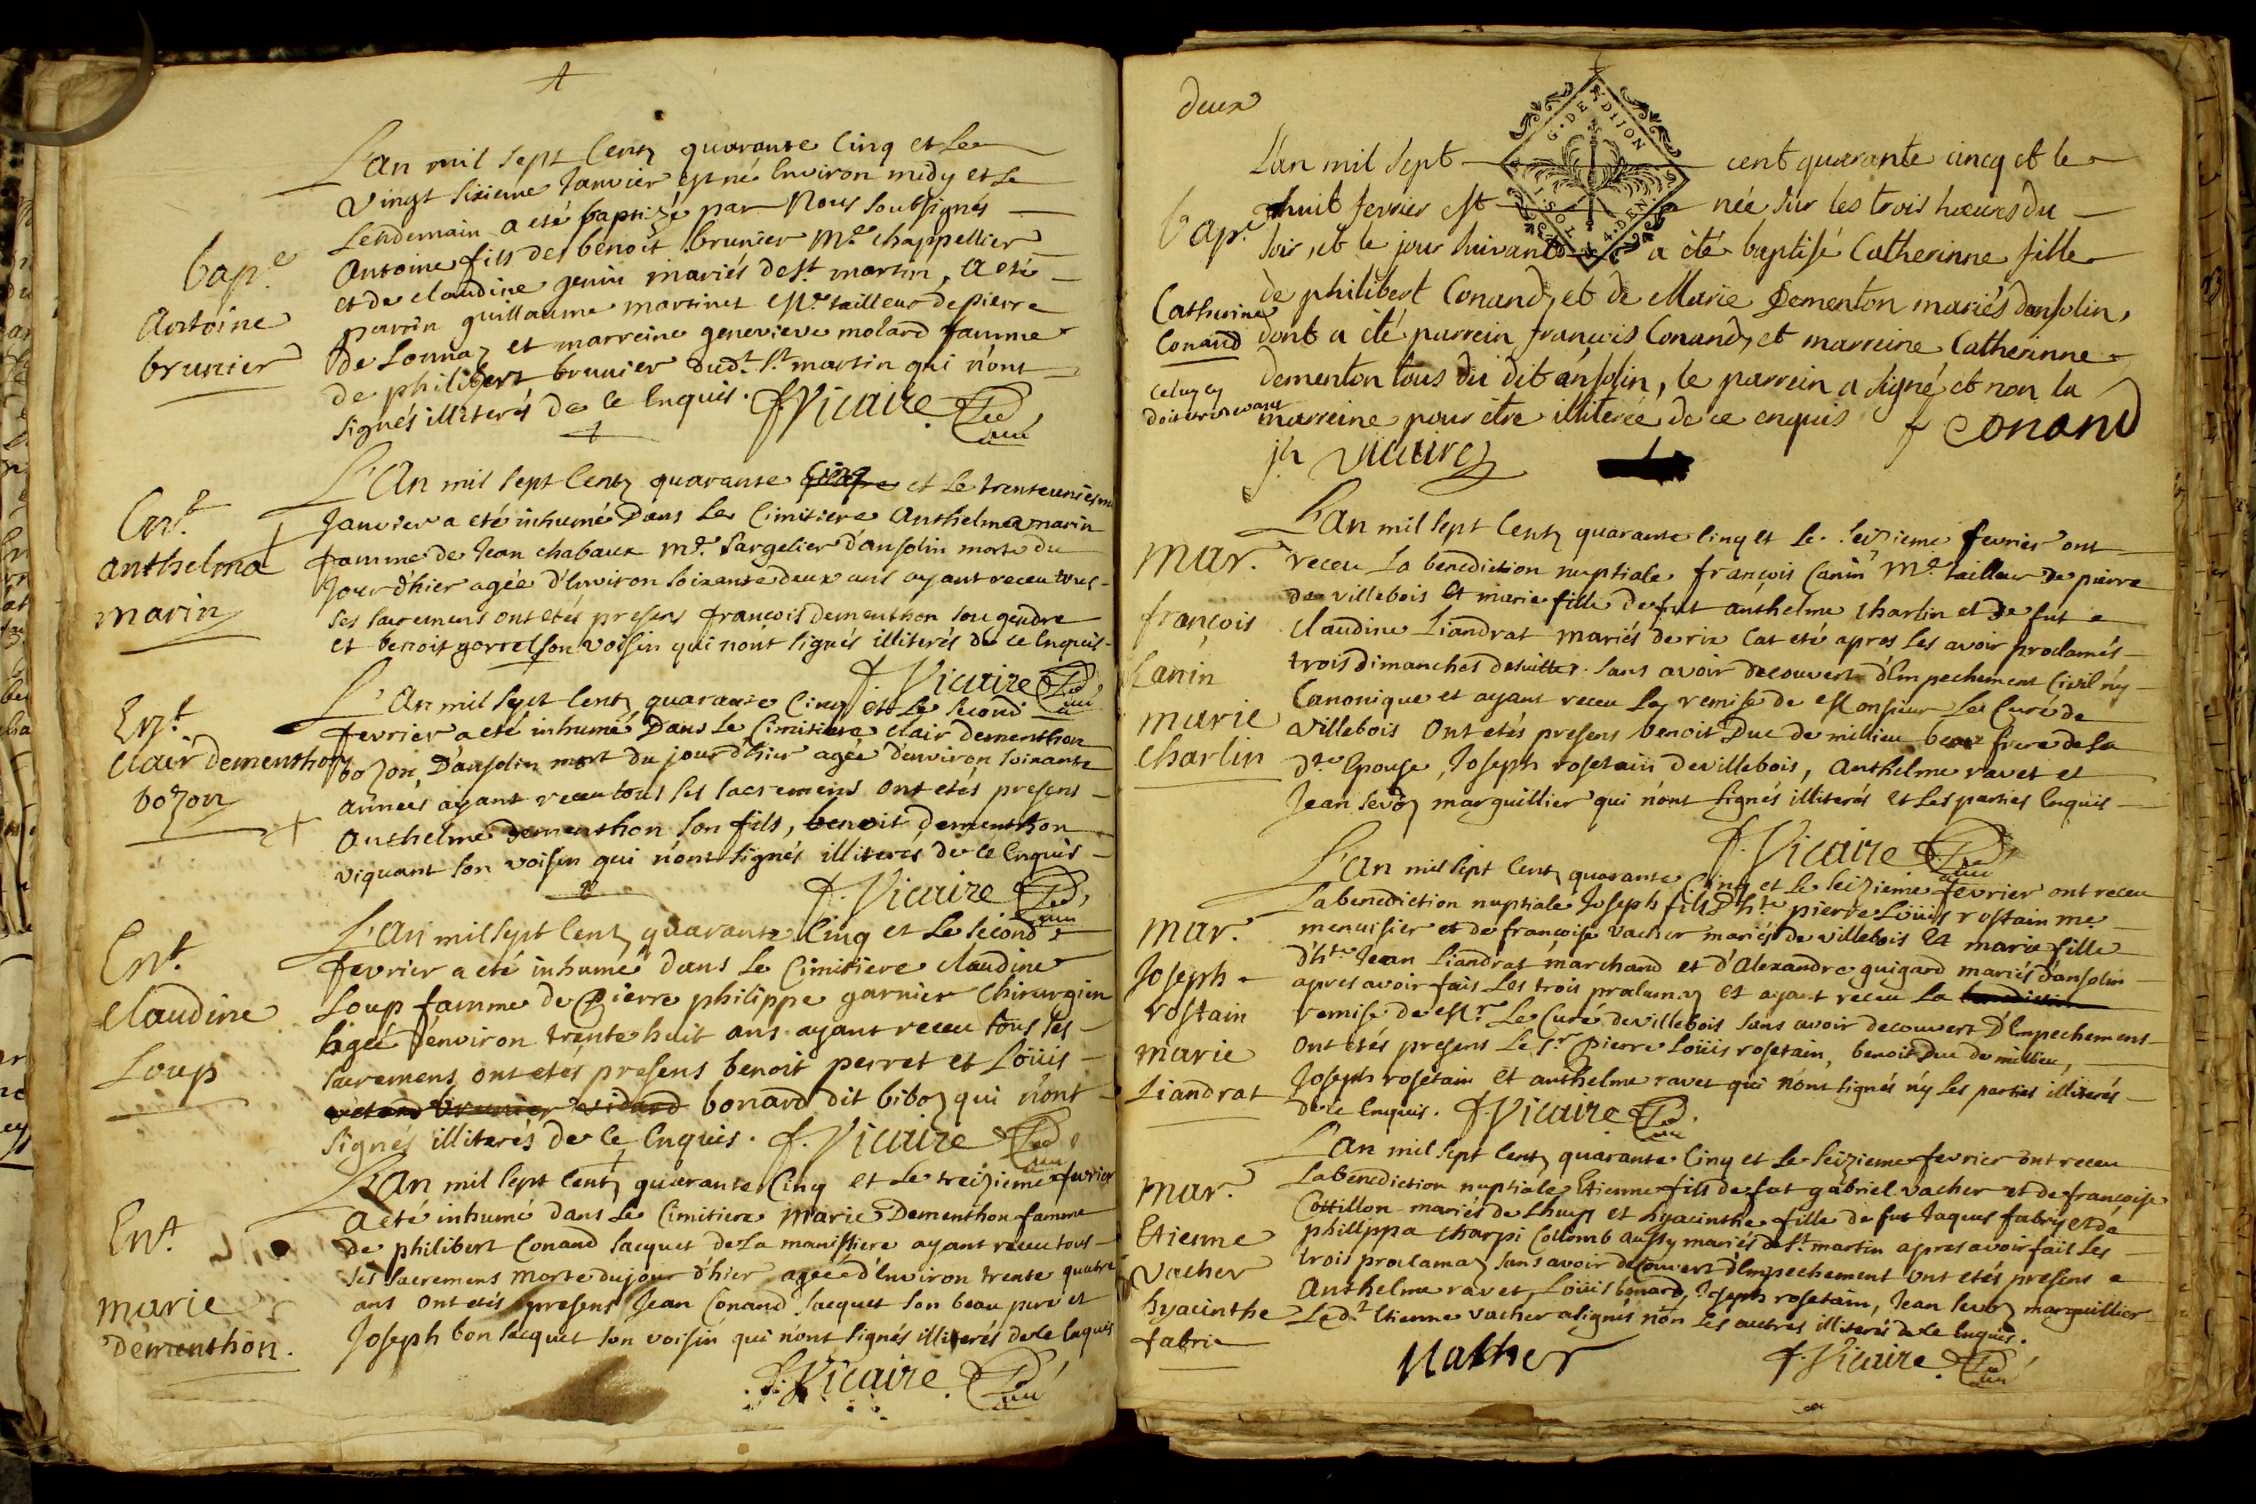 L'an mil sept Centz quarante Cinq et Le
vingt sixieme Janvier est né Environ midy et Le
Lendemain a eté baptizé par Nous soubsignés
bap.e
Antoine
brunier
Antoine fils de benoit brunier M.e chappellier
et de claudine genin mariés de s.t martin, a eté
parrin guillaume martinet M.e tailleur de pierre
de Lonnaz et marreine genevieve molard famme
de philibert brunier dud.t s.t martin qui n'ont
signés illiterés de ce Enquis. f. Vicaire
Ent.
anthelma
marin
L'An mil sept Centz quarante Cinq et Le trenteuniem
Janvier a eté inhumé Dans Le Cimitiere Anthelma marin
famme de Jean chabaux M.e sargetier d'ansolin morte du
Jour d'hier agée d'Environ soixante deux ans ayant receu tous
ses sacremens ont etés presens françois dementhon son gendre
et benoit gorrel son voisin qui n'ont signés illiterés de ce Enquis
f. Vicaire
Ent.
clair dementhon
bozon
L'An mil sept Centz quarante Cinq et Le second
fevrier a eté inhumé Dans Le Cimitiere clair dementhon
bozon D'ansolin mort du jour d'hier agée d'environ soixante
années ayant receu tous ses sacremens ont etés presens
Anthelme dementhon son fils, benoit dementhon
viquant son voisin qui n'ont signés illiterés de ce Enquis
f. Vicaire
Ent.
claudine
Loup
L'An mil sept Centz quarante Cinq et Le second
fevrier a eté inhumé dans Le Cimitiere claudine
Loup famme de Pierre philippe garnier Chirurgien
agée d'environ trente huit ans ayant receu tous ses
sacremens ont etés presens benoit perret et Loüis
brunier vidard bonard dit biboz qui n'ont
signés illiterés de ce Enquis. f. Vicaire
Ent.
marie
Dementhon.
L'An mil sept Centz quarante Cinq et Le treizieme fevrier
a eté inhumé dans Le Cimitiere Marie Dementhon famme
de philibert Conand Jacquet de La manistiere ayant receu tous
ses sacremens morte du jour d'hier agée d'Environ trente quatre
ans ont etés presens Jean Conand Jacquet son beau pere et
Joseph bon Jacquet son voisin qui n'ont signés illiterés de ce Enquis
f. Vicaire
deux
G. DE DIJON
1. SOL. 4. DEN.
bap.e
Catherine
Conand
celuy cy
doit etre devant
L'an mil sept cent quarante cincq et le
huit fevrier est née sur les trois hœures du
soir, et le jour suivant a été baptisé Catherinne fille
de philibert Conand, et de Marie Dementon mariés d'ansolin,
dont a été parrein françois Conand, et marreine Catherinne
dementon tous du dit ansolin, le parrein a signé et non la
marreine pour être illiterée de ce enquis f Conand
vicaire
mar.
françois
Canin
marie
charlin
L'An mil sept Centz quarante Cinq et Le seizieme fevrier ont
receu La benediction nuptiale françois Canin M.e tailleur de pierre
de villebois et marie fille de fut anthelme charlin et de fut
claudine Liandrat mariés de rix Cat eté apres Les avoir proclamés
trois dimanches desuittes sans avoir decouvert d'Empechement Civil n'y
Canonique et ayant receu La remise de Monsieur Le Curé de
villebois Ont etés presens benoit Duc de millieu beau frere de La
d.te Epouse, Joseph rosetain de villebois, Anthelme ravet et
Jean sevoz marguillier qui n'ont signés illiterés et Les parties Enquis
f. Vicaire
mar.
Joseph
rostain
marie
Liandrat
L'An mil sept Centz quarante Cinq et Le seizieme fevrier ont receu
La benediction nuptiale Joseph fils d'h.te pierre Loüis rostain me
menuisier et de françoise vacher mariés de villebois et marie fille
d'h.te Jean Liandrat marchand et d'Alexandre guigard mariés d'ansolin
apres avoir fait Les trois proclamaz et ayant receu La benediction
remise de M.r Le Curé de villebois sans avoir decouvert d'Empechement
Ont etés presens Le s.r Pierre Loüis rosetain, benoit Duc de millieu,
Joseph rosetain et anthelme ravet qui n'ont signés n'y Les parties illiterés
de ce Enquis. f. Vicaire
mar.
Etienne
vacher
hyacinthe
fabrie
L'an mil sept Centz quarante Cinq et Le seizieme fevrier ont receu
La benediction nuptiale Etienne fils de fut gabriel vacher et de françoise
Cottillon mariés de Lhuys et hyacinthe fille de fut Jaques fabry et de
philippa charpi Collomb aussy mariés de s.t martin apres avoir fait Les
trois proclamaz sans avoir decouvert d'Empechement ont etés presens
Anthelme ravet, Loüis bonard, Joseph rosetain, Jean sevoz marguillier
Led.t Etienne vacher a signés non Les autres illiterés de ce Enquis.
Vacher f. Vicaire